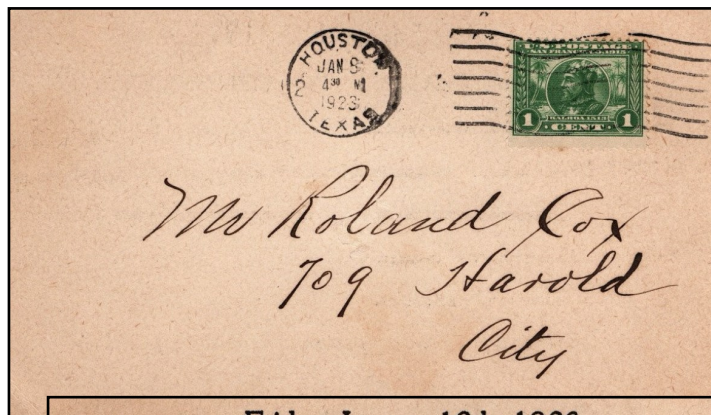 HOUSTON
JAN 8
4 30 M
1923
TEXAS
2
U.S. POSTAGE
SAN FRANCISCO 1915
BALBOA 1513
1 CENT 1
Mr Roland Cox
709 Harold
City